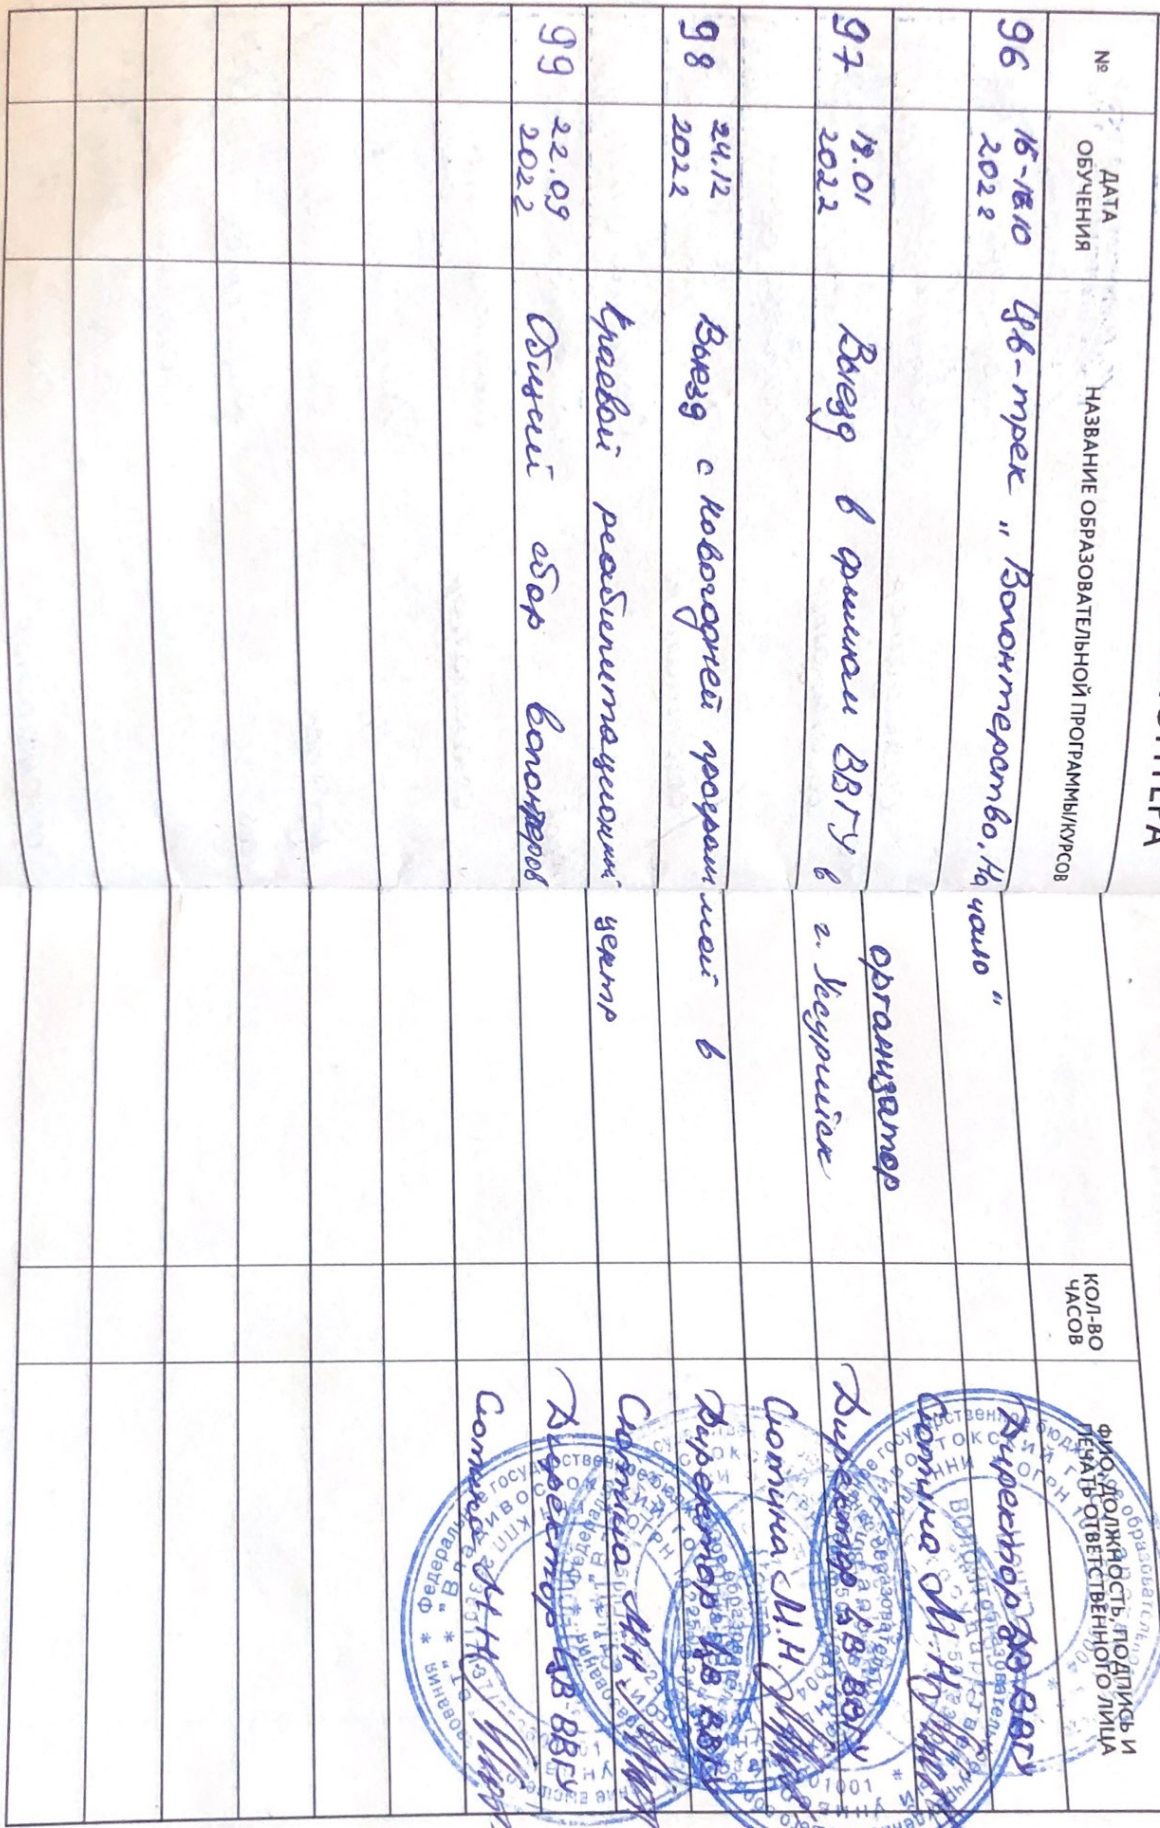 №
ДАТА
ОБУЧЕНИЯ
НАЗВАНИЕ ОБРАЗОВАТЕЛЬНОЙ ПРОГРАММЫ/КУРСОВ
КОЛ-ВО
ЧАСОВ
ФИО, ДОЛЖНОСТЬ, ПОДПИСЬ И
ПЕЧАТЬ ОТВЕТСТВЕННОГО ЛИЦА
96
2022
ЦВ-трек „Волонтерство. Начало"
организатор
Директор ЦВ ВВГУ
Сотина М.Н
97
19.01
2022
Выезд в филиал ВВГУ в г. Уссурийск
Директор ЦВ ВВГУ
Сотина М.Н
98
24.12
2022
Выезд с новогодней программой в
Краевой реабилитационный центр
Директор ЦВ ВВГУ
Сотина М.Н
99
22.09
2022
Общий сбор волонтеров
Директор ЦВ ВВГУ
Сотина М.Н